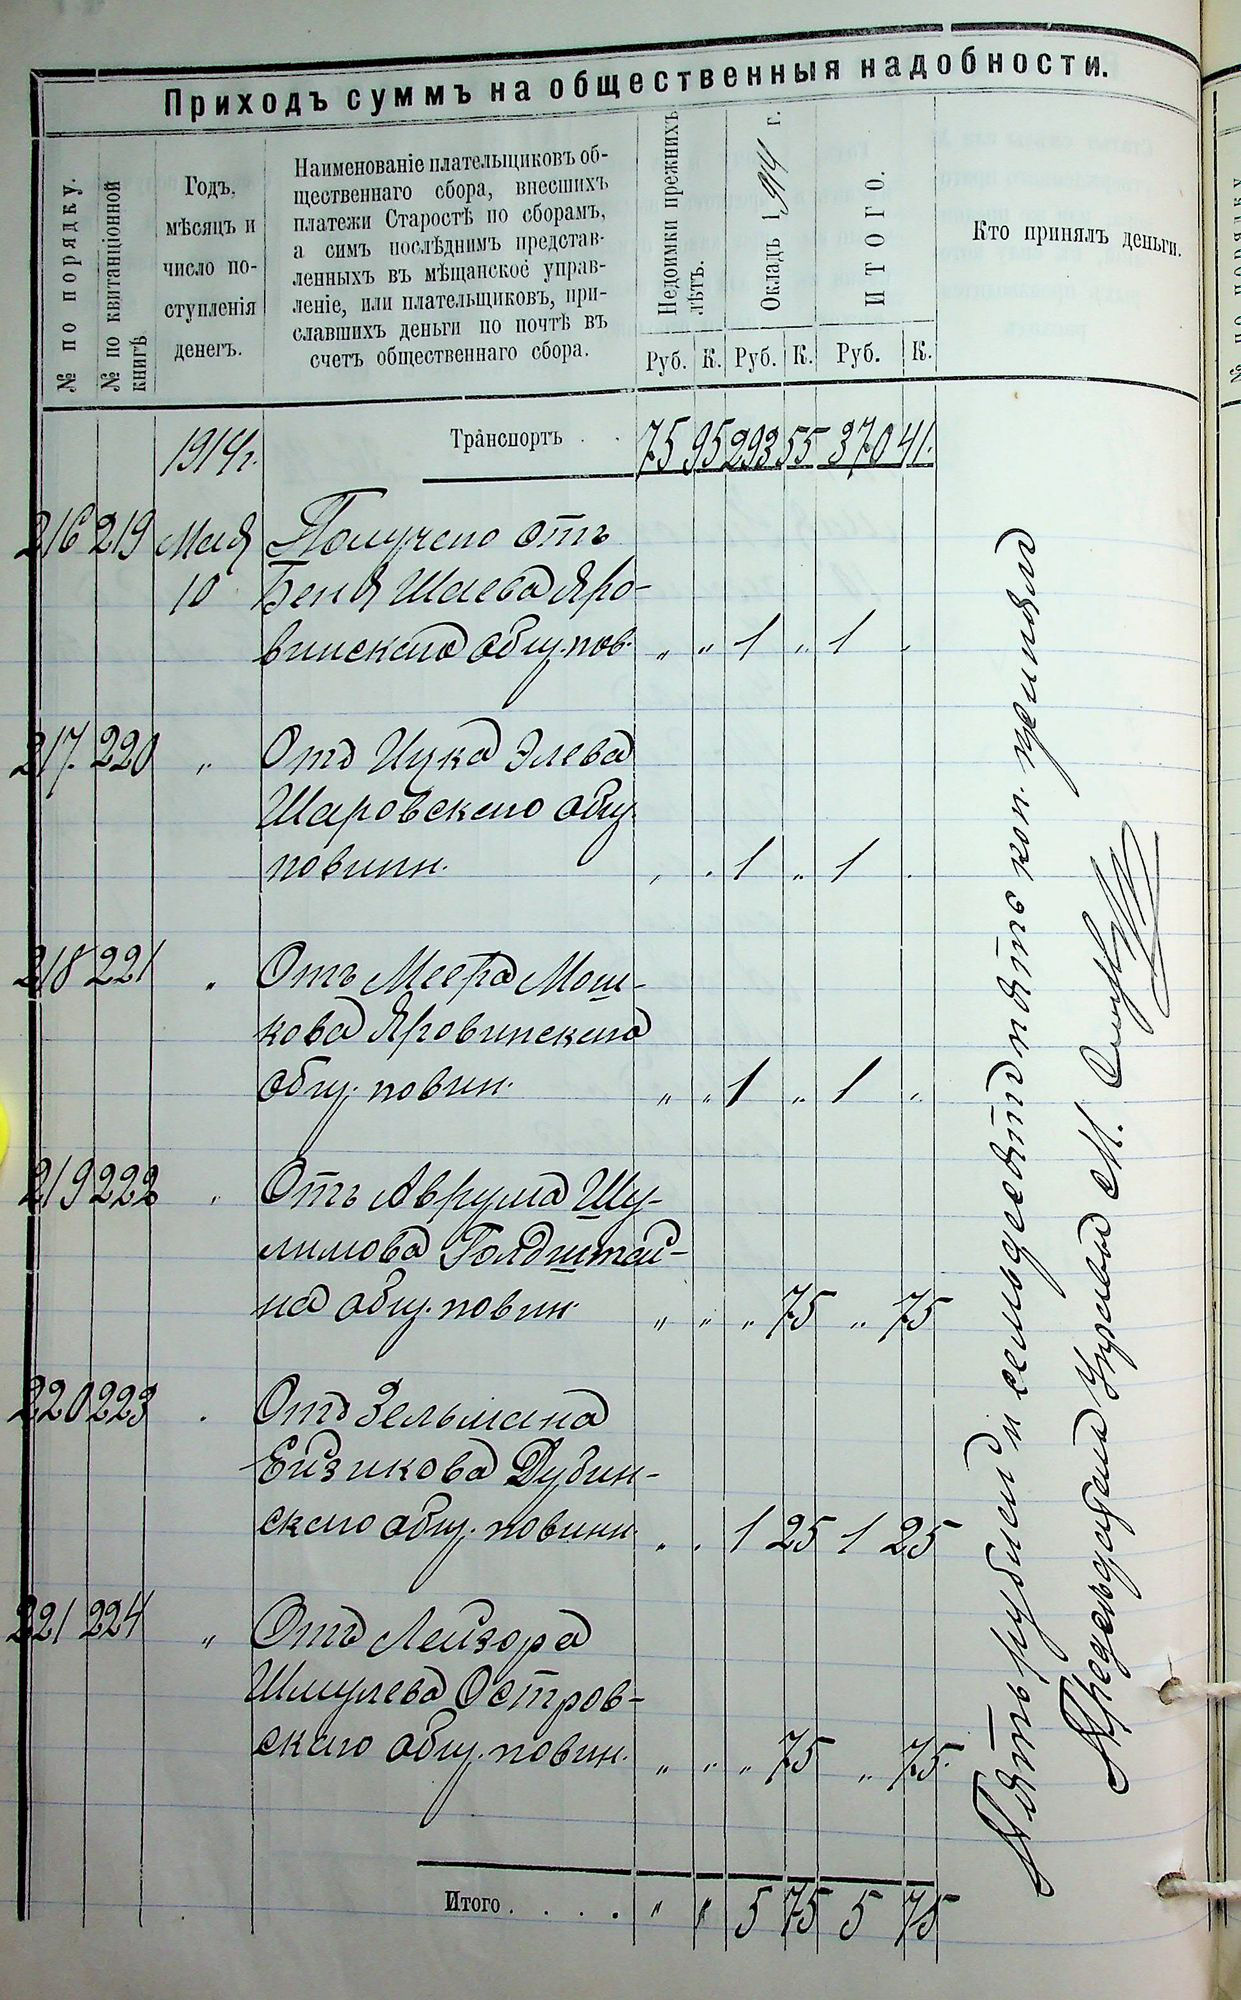 Приходъ суммъ на общественныя надобности.
№ по порядку.
№ по квитанціонной
книгѣ.
Годъ,
мѣсяцъ и
число по-
ступленія
денегъ.
Наименованіе плательщиковъ об-
щественнаго сбора, внесшихъ
платежи Старостѣ по сборамъ,
а симъ послѣднимъ представ-
ленныхъ въ мѣщанское управ-
леніе, или плательщиковъ, при-
славшихъ деньги по почтѣ въ
счетъ общественнаго сбора.
Недоимки прежнихъ
лѣтъ.
Окладъ 1914 г.
ИТОГО.
Кто принялъ деньги.
Руб. К. Руб. К. Руб. К.
1914 г. Транспортъ . . 75 95 293 55 370 41.
216 219 Мая Получено отъ
10 Беня Шаева Яро-
винскаго общ. пов. „ „ 1 „ 1 „
217. 220 „ Отъ Ицка Элева
Шаровскаго общ.
повинн. „ „ 1 „ 1 „
218 221 „ Отъ Меера Мош-
кова Яровинскаго
общ. повин. „ „ 1 „ 1 „
219 222 „ Отъ Аврума Шу-
лимова Голдштей-
на общ. повин. „ „ „ 75 „ 75
220 223 „ Отъ Зельмана
Ейзикова Дубин-
скаго общ. повинн. „ „ 1 25 1 25
221 224 „ Отъ Лейзора
Шмулева Остров-
скаго общ. повин. „ „ „ 75 „ 75.
Итого . . . . „ „ 5 75 5 75
Пять рублей и семьдесятъ пять коп. принялъ
Предсѣдатель Управы М.
№ ПО ПОРЯДКУ